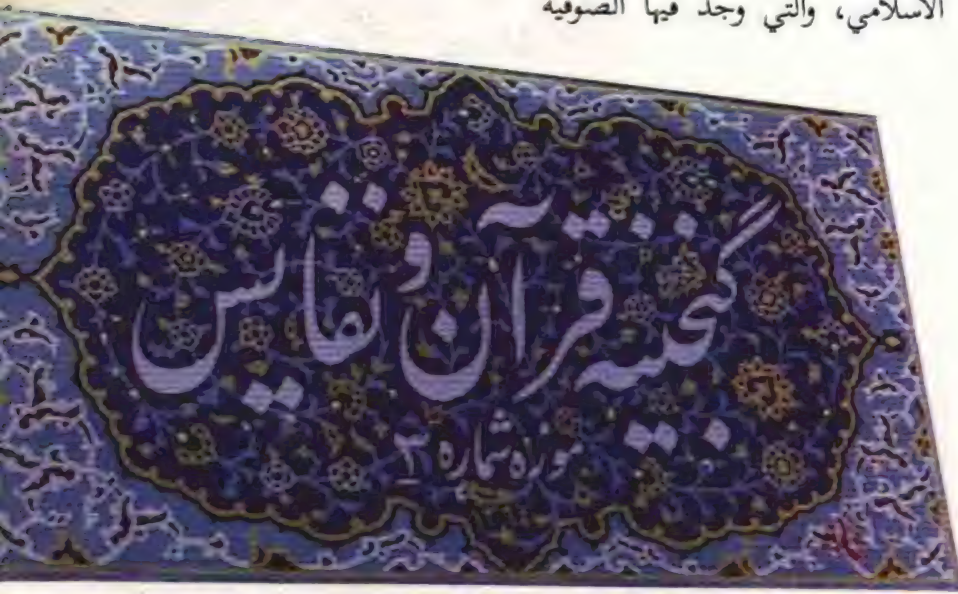 الاسلامي، والتي وجد فيها الصوفيه
گنجینه قرآن و نفایس
موزه شماره ۲